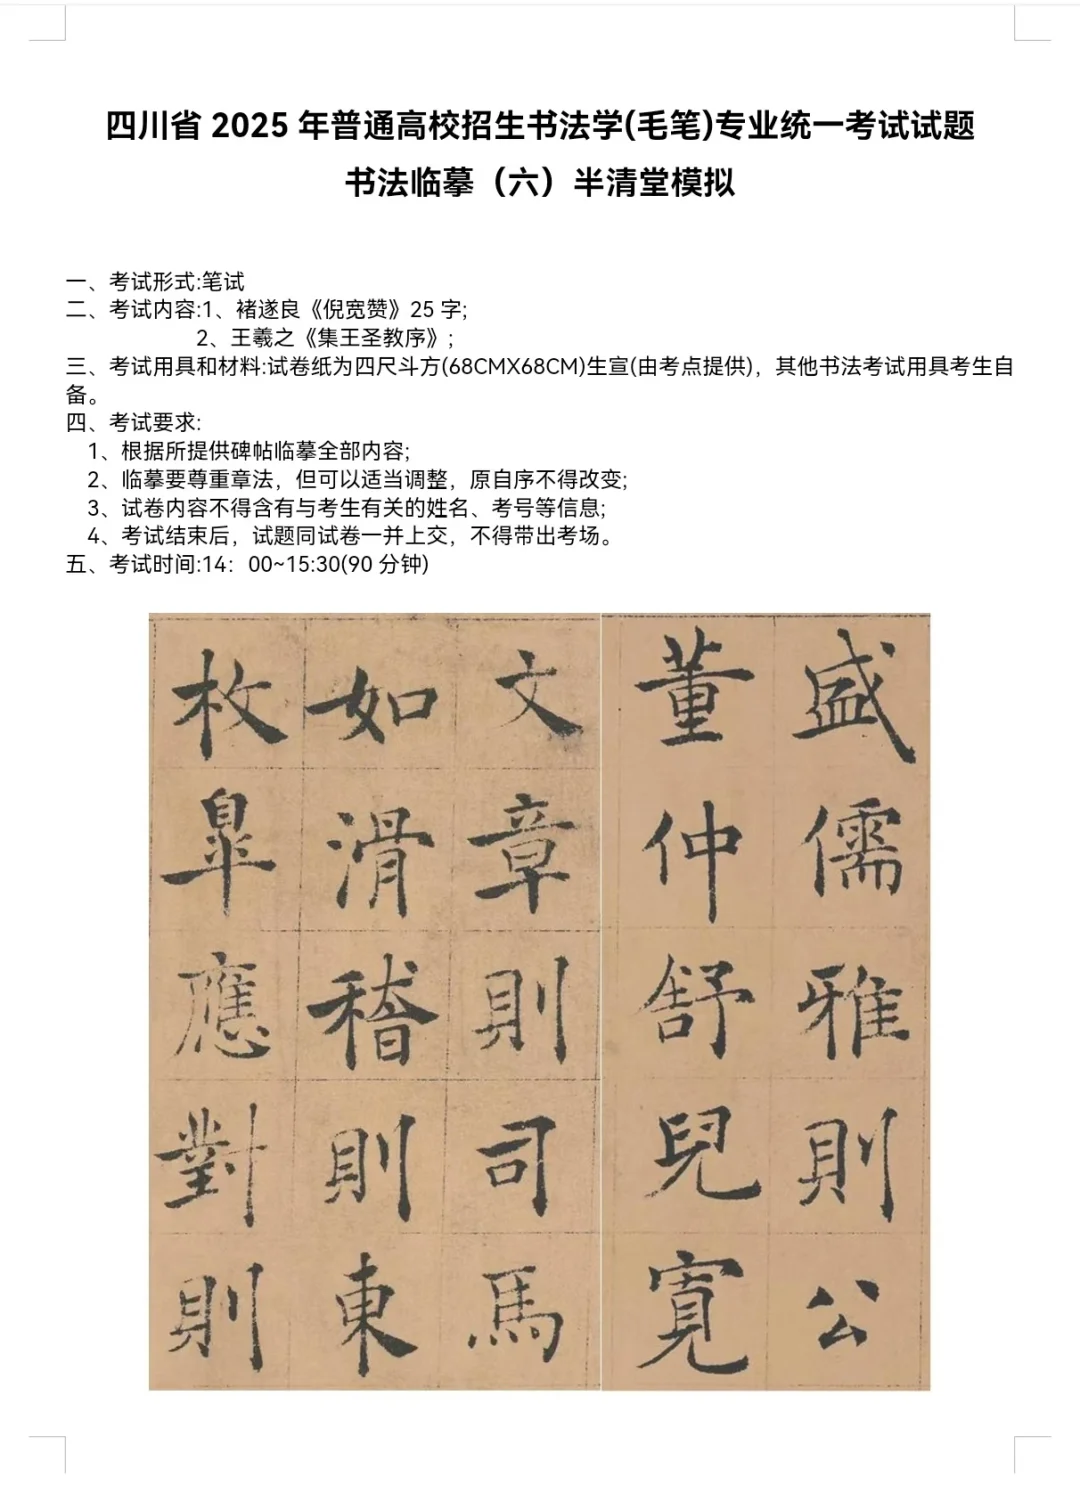 四川省 2025 年普通高校招生书法学(毛笔)专业统一考试试题
书法临摹（六）半清堂模拟
一、考试形式:笔试
二、考试内容:1、褚遂良《倪宽赞》25 字;
2、王羲之《集王圣教序》;
三、考试用具和材料:试卷纸为四尺斗方(68CMX68CM)生宣(由考点提供)，其他书法考试用具考生自
备。
四、考试要求:
1、根据所提供碑帖临摹全部内容;
2、临摹要尊重章法，但可以适当调整，原自序不得改变;
3、试卷内容不得含有与考生有关的姓名、考号等信息;
4、考试结束后，试题同试卷一并上交，不得带出考场。
五、考试时间:14：00~15:30(90 分钟)
盛儒雅則公
董仲舒兒寬
文章則司馬
如滑稽則東
枚皐應對則